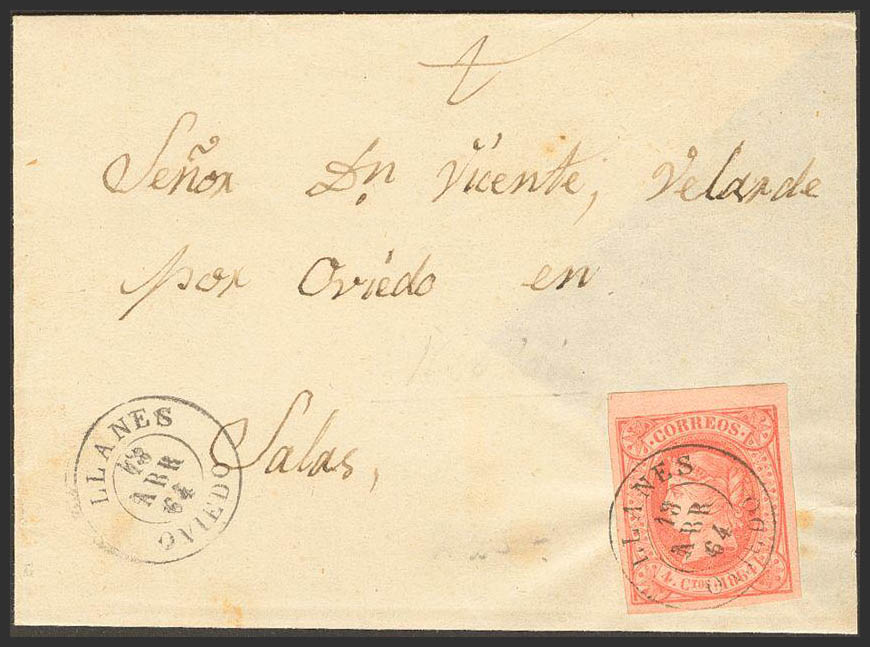 Señor Dn Vicente, Velarde
por Oviedo en
Salas,
LLANES
ABR
64
OVIEDO
CORREOS
LLANES
19
ABR
64
OVIEDO
4. Ctos 1864